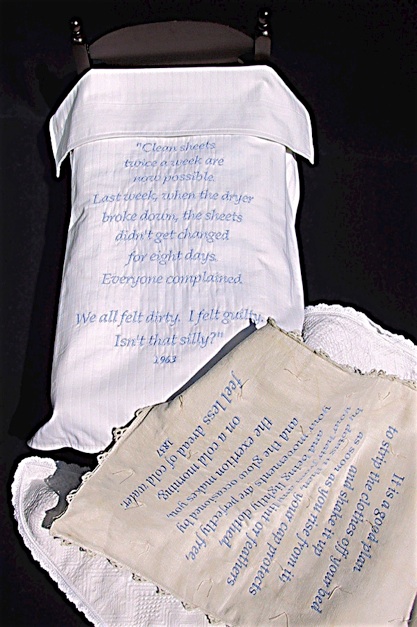 "Clean sheets
twice a week are
now possible.
Last week, when the dryer
broke down, the sheets
didn't get changed
for eight days.
Everyone complained.
We all felt dirty. I felt guilty.
Isn't that silly?"
1963
It is a good plan
to strip the clothes off your bed
and shake it up
as soon as you rise from it
by doors
your cap protects
of feathers
Your movements are perfectly free,
lungs highly dilated,
and the glow occasioned by
the exertion makes you
feel less dread of cold water
on a cold morning.
1857